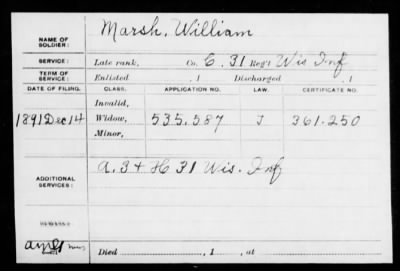 NAME OF SOLDIER: Marsh, William
SERVICE: Late rank, Co. C. 31 Reg't Wis Inf
TERM OF SERVICE: Enlisted , 1 Discharged , 1
DATE OF FILING. CLASS. APPLICATION NO. LAW. CERTIFICATE NO.
Invalid,
1891 Dec 14 Widow, 535.587 J 361.250
Minor,
ADDITIONAL SERVICES: A. 3 & H 31 Wis. Inf
Died , 1 , at